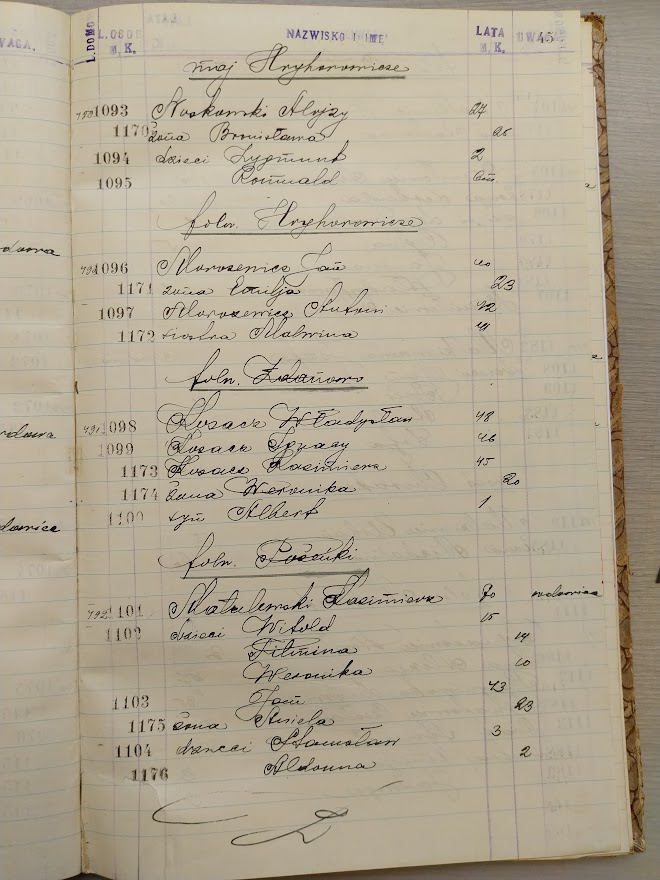 WAGA.
L.DOMO
L.OSOB
M. K.
NAZWISKO I IMIĘ
LATA
M. K.
UWAGA
45
maj Hryhorowicze
1093 Noskowski Alojzy 27
1170 żona Bronisława 26
1094 dzieci Zygmunt 2
1095 Romuald
folw. Hryhorowicze
1096 Morozewicz Jan 40
1171 żona Emilja 23
1097 Morozewicz Antoni 42
1172 siostra Malwina 44
folw. Zdanowo
431 1098 Kosacz Władysław 48
1099 Kosacz Ignacy 46
1173 Kosacz Kazimiera 45
1174 żona Weronika 20
1100 syn Albert 1
folw.
432 1101 Matulewski Kazimierz 70 wdowiec
1102 dzieci Witold 15
Filmina 14
Weronika 10
1103 Jan 43
1175 żona Aniela 23
1104 dzieci Stanisław 3
1176 Aldonna 2